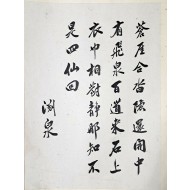 蒼崖合沓陰還開中
有飛泉百道來石上
衣巾相對靜那知不
是四仙回
淵泉